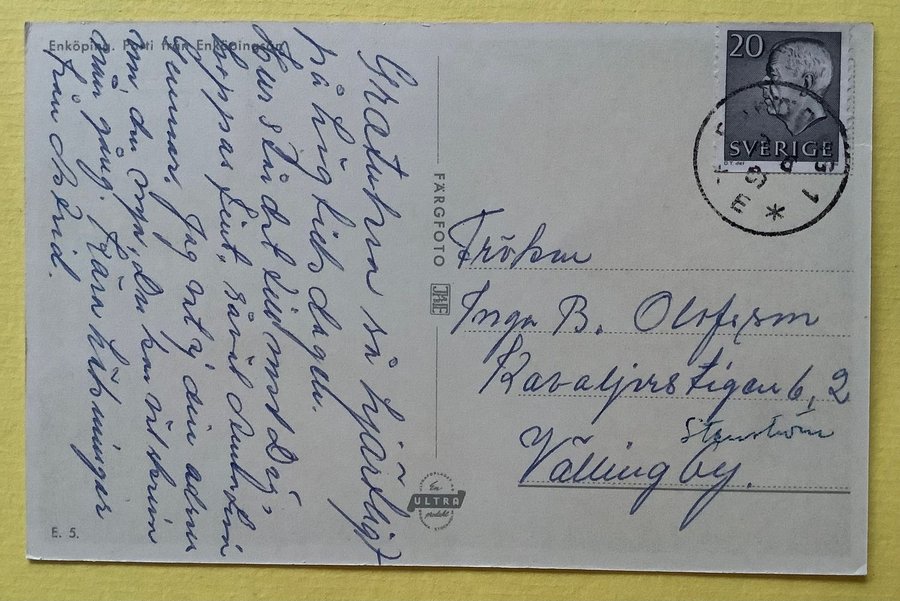 Enköping. Parti från Enköpingsån
Gratulera så hjärtligt
på högtidsdagen.
Hur står det till med Dig,
hoppas fint, såväl
Gunnar. Jag vet ej din adress
om du nya, Du kan väl skriva
någon gång. Kära hälsningar
från Astrid.
E. 5.
FÄRGFOTO
En
ULTRA
produkt
20
SVERIGE
Fröken
Inga B. Olofsson
Kavaljersstigen 6, 2
Stenström
Vällingby.